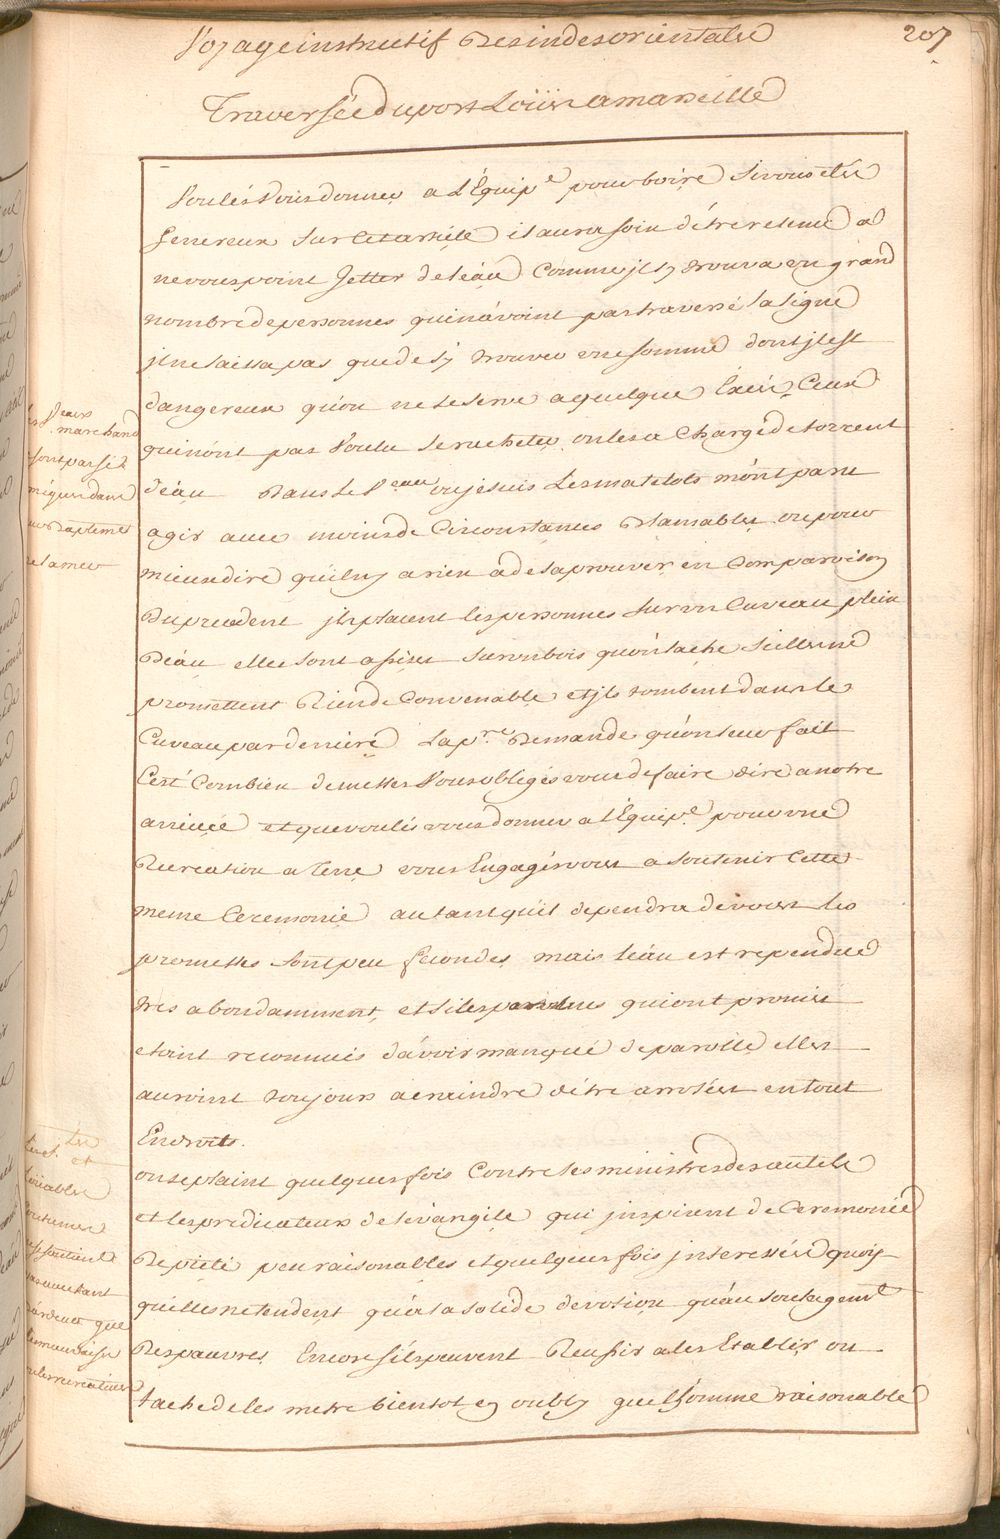 Voyage instructif Des indes orientales
207
Traversée du port Loüis a marseille
Voulés Vous donner a L'Equip.e pour boire si vous etes
genereux sur cet article il aura soin d'être retenu a
ne vous point Jetter de l'eau Comme il s'y trouva un grand
nombre de personnes qui n'avoint pas traversé la ligne
il ne laissa pas que de s'y trouver une somme dont il est
dangereux qu'on ne se serve a quelque Excés. Ceux
qui n'ont pas Voulu se racheter on les a Chargé de torrent
d'eau Dans le V.eau ou je suis Les matelots m'ont paru
agir avec moins de Circonstances Blamables ou pour
mieux dire qu'il n'y a rien a desaprouver en Comparaison
Du precedent ils placent les personnes sur un Cuveau plein
D'eau elles sont assises sur un bois qu'on lache si elles ne
promettent Rien de Convenable et ils tombent dans le
Cuveau par derriere La p.re Demande qu'on leur fait
C'est Combien de messes Vous obligés vous de faire dire a notre
arrivée et que voulés vous donner a l'Equip.e pour une
Recreation a Terre vous Engagés vous a soutenir Cette
meme Ceremonie autant qu'il dependra de vous les
promesses sont peu secondes mais l'eau est rependue
tres abondamment, et si les personnes qui ont promis
etoint reconnues d'avoir manqué de parolle elles
auroint toujours a craindre d'être arrosées en tout
Endroits.
on se plaint quelques fois Contre les ministres des autels
et les predicateurs de l'evangile qui inspirent de Ceremonie
De pieté peu raisonables et quelques fois interessées quoy
qu'elles ne tendent qu'a la solide devotion qu'au soulagemt
Des pauvres Encore s'ils peuvent Reussir a les Etablir on
tache de les metre bientot en oubly que l'homme raisonable
V.eaux
marchand
sont par si
dans
Baptemes
la mer
et
louables
coutumes
soutient
autant
d'ardeur que
les mauvaises